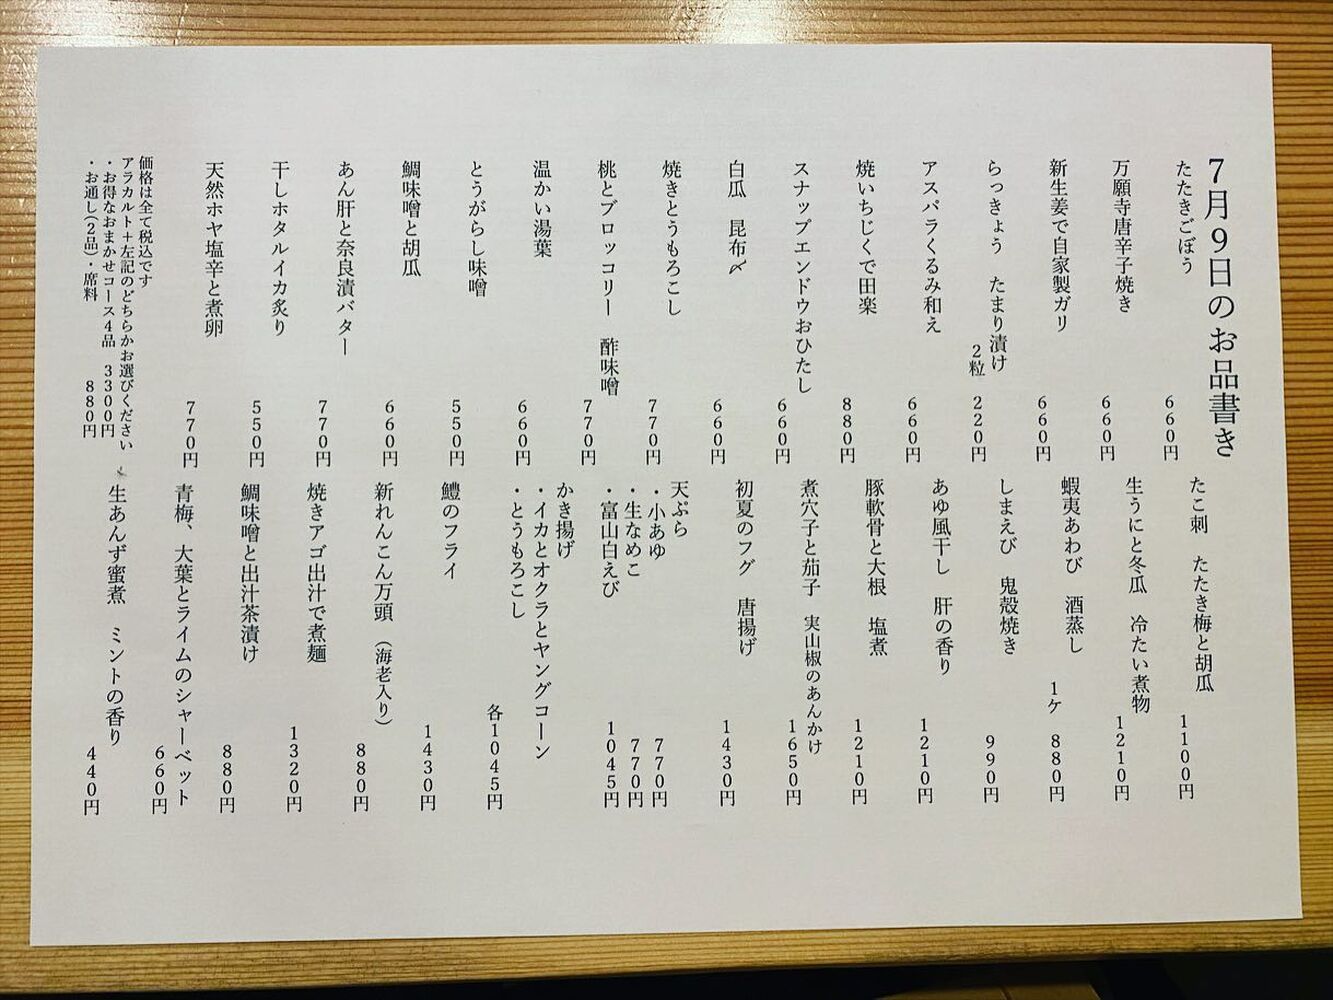 7月9日のお品書き
たたきごぼう
660円
万願寺唐辛子焼き
660円
新生姜で自家製ガリ
660円
らっきょう　たまり漬け
2粒　220円
アスパラくるみ和え
660円
焼いちじくで田楽
880円
スナップエンドウおひたし
660円
白瓜　昆布〆
660円
焼きとうもろこし
770円
桃とブロッコリー　酢味噌
770円
温かい湯葉
660円
とうがらし味噌
550円
鯛味噌と胡瓜
660円
あん肝と奈良漬バター
770円
干しホタルイカ炙り
550円
天然ホヤ塩辛と煮卵
770円
価格は全て税込です
アラカルト＋左記のどちらかお選びください
・お得なおまかせコース4品　3300円
・お通し(2品)・席料　880円
たこ刺　たたき梅と胡瓜
1100円
生うにと冬瓜　冷たい煮物
1210円
蝦夷あわび　酒蒸し
1ケ　880円
しまえび　鬼殻焼き
990円
あゆ風干し　肝の香り
1210円
豚軟骨と大根　塩煮
1210円
煮穴子と茄子　実山椒のあんかけ
1650円
初夏のフグ　唐揚げ
1430円
天ぷら
・小あゆ　770円
・生なめこ　770円
・富山白えび　1045円
かき揚げ
・イカとオクラとヤングコーン
・とうもろこし
各1045円
鱧のフライ
1430円
新れんこん万頭　（海老入り）
880円
焼きアゴ出汁で煮麺
1320円
鯛味噌と出汁茶漬け
880円
青梅、大葉とライムのシャーベット
660円
生あんず蜜煮　ミントの香り
440円